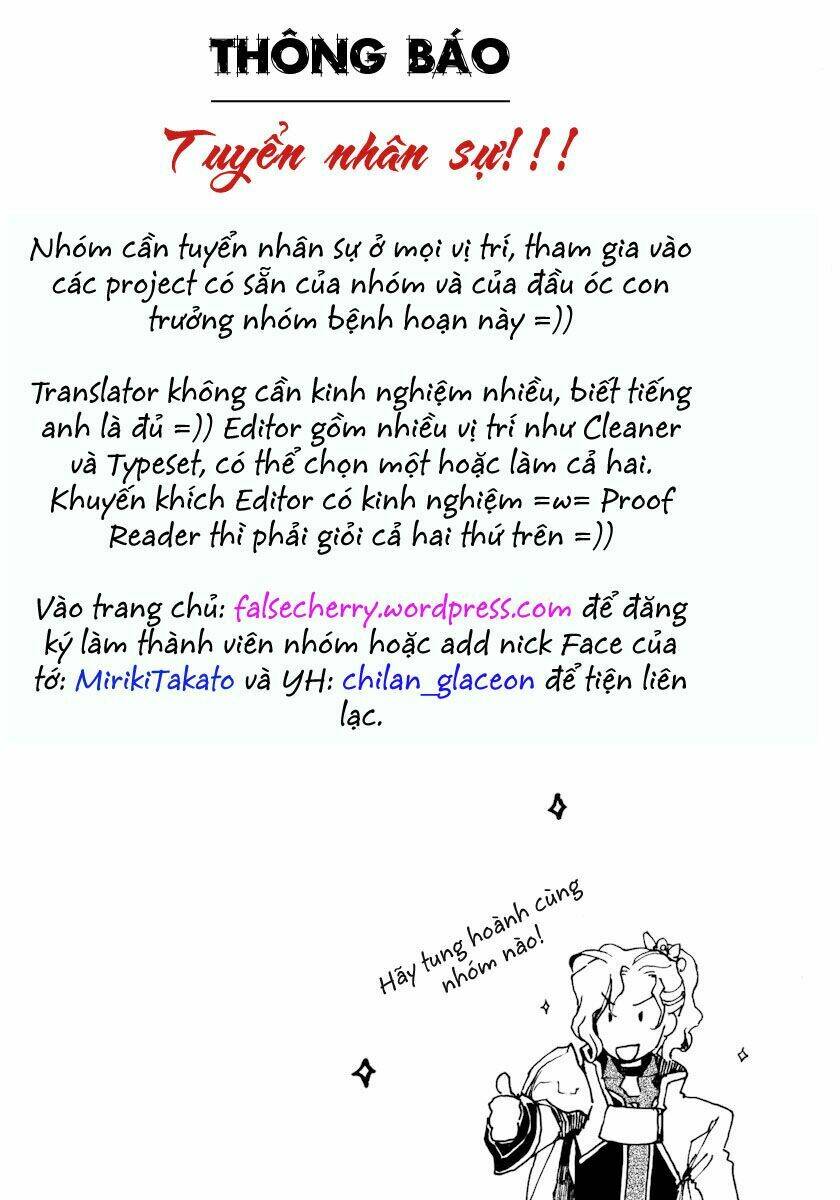 THÔNG BÁO
Tuyển nhân sự!!!
Nhóm cần tuyển nhân sự ở mọi vị trí, tham gia vào
các project có sẵn của nhóm và của đầu óc con
trưởng nhóm bệnh hoạn này =))
Translator không cần kinh nghiệm nhiều, biết tiếng
anh là đủ =)) Editor gồm nhiều vị trí như Cleaner
và Typeset, có thể chọn một hoặc làm cả hai.
Khuyến khích Editor có kinh nghiệm =w= Proof
Reader thì phải giỏi cả hai thứ trên =))
Vào trang chủ: falsecherry.wordpress.com để đăng
ký làm thành viên nhóm hoặc add nick Face của
tớ: MirikiTakato và YH: chilan_glaceon để tiện liên
lạc.
Hãy tung hoành cùng
nhóm nào!